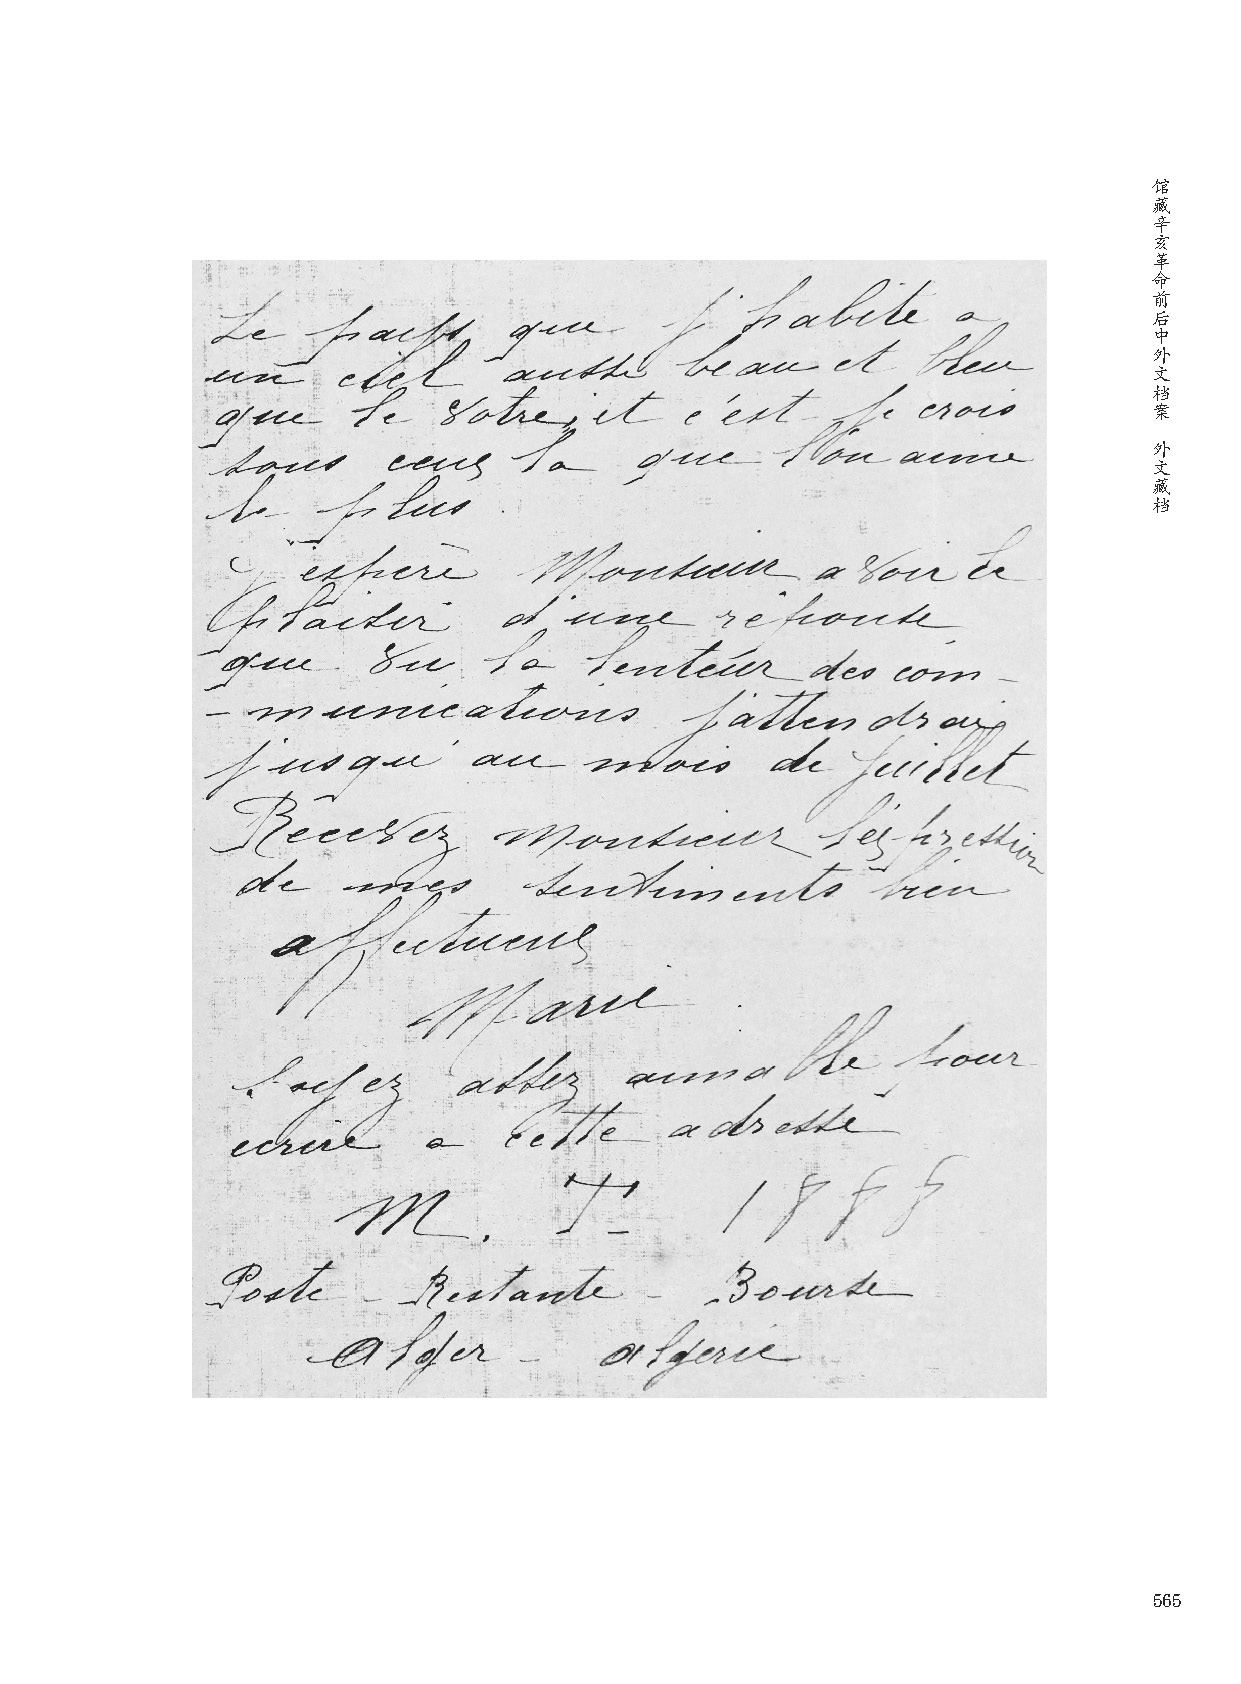 Le pays que j'habite a
un ciel aussi beau et bleu
que le votre, et c'est je crois
sous ceux la que l'on aime
le plus.
J'espère Monsieur avoir le
plaisir d'une réponse
que vu la lenteur des com-
-munications j'attendrai
jusqu'au mois de juillet
Recevez monsieur l'expression
de mes sentiments bien
affectueux
Marie
Soyez assez aimable pour
ecrire a cette adresse
M. T- 1888
Poste - Restante - Bourse
Alger - algerie
馆藏辛亥革命前后中外文档案 外文藏档
565